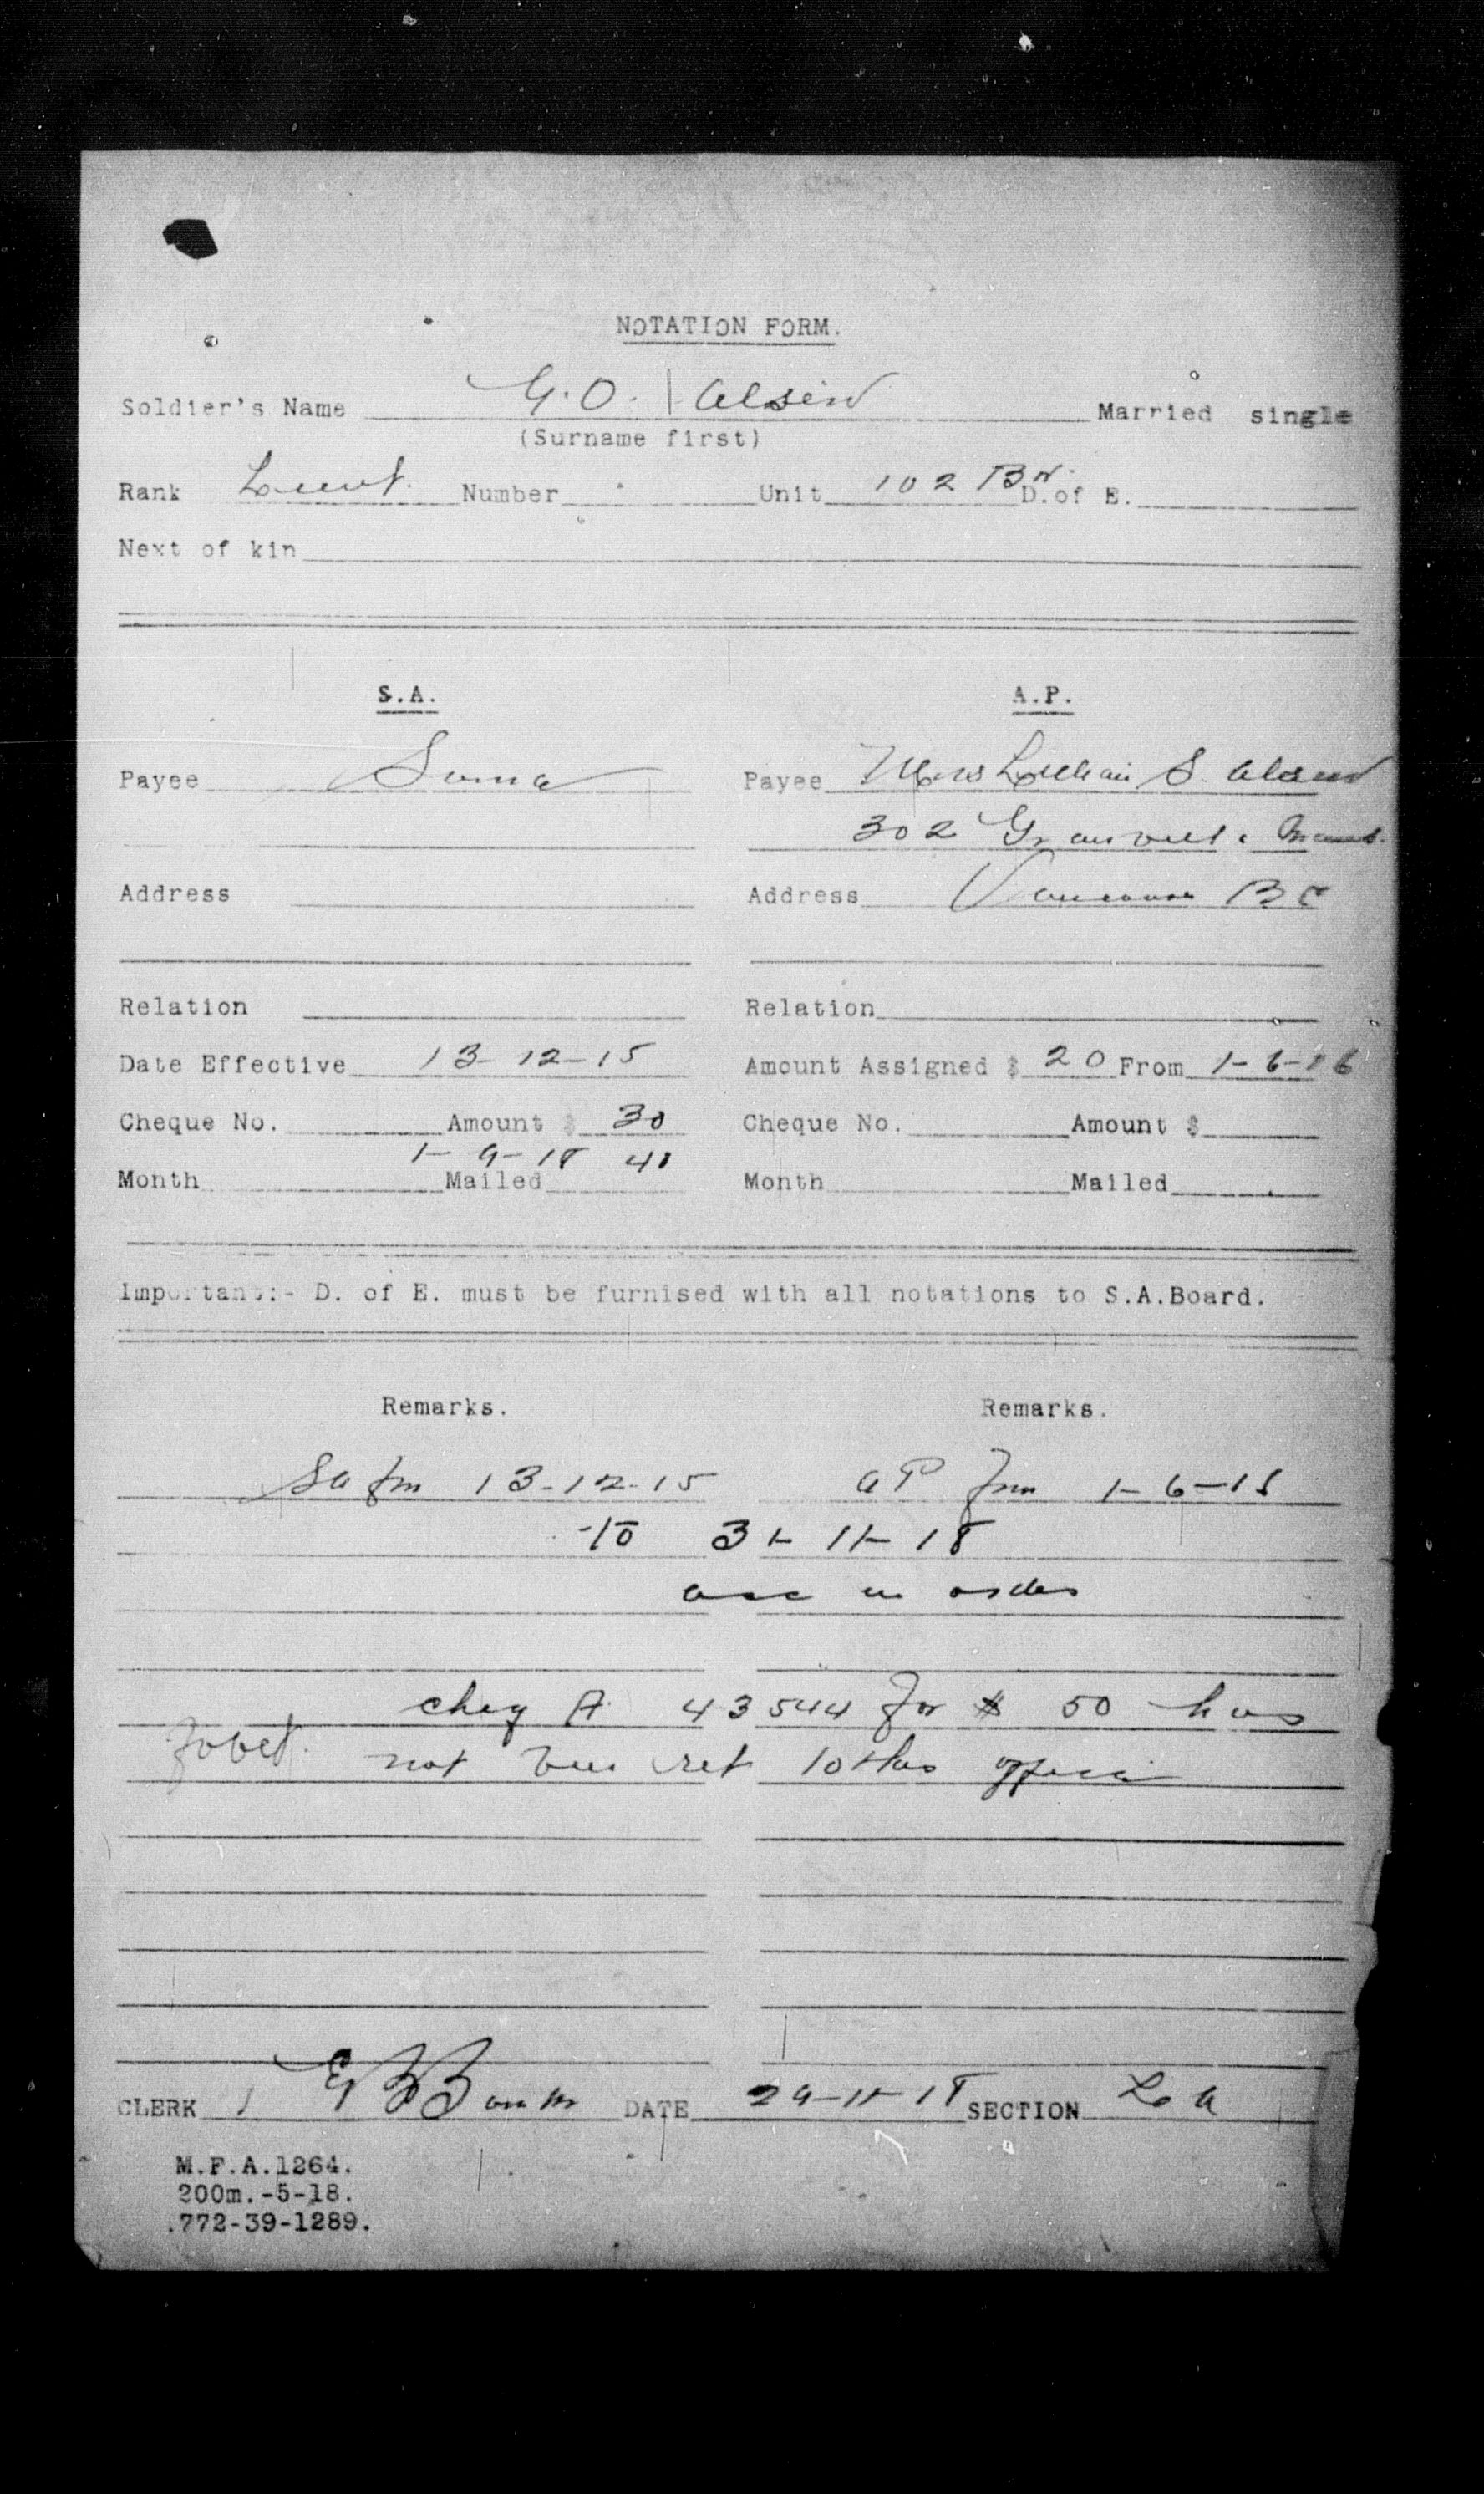 NOTATION FORM.
Soldier's Name G.O. Alsen Married single
(Surname first)
Rank Lieut. Number Unit 102 Bn. D.of E.
Next of kin
S.A. A.P.
Payee Same Payee Mrs Lillian S. Alsen
302 Granville
Address Address Vancouver BC
Relation Relation
Date Effective 13-12-15 Amount Assigned $ 20 From 1-6-16
Cheque No. Amount $ 30 Cheque No. Amount $
1-9-18 40
Month Mailed Month Mailed
Important:- D. of E. must be furnised with all notations to S.A.Board.
Remarks. Remarks.
SA fm 13-12-15 AP from 1-6-16
to 31-11-18
acc in order
cheq A 43544 for $ 50 has
not been ret to this office
CLERK DATE 29-11-18 SECTION
M.F.A.1264.
200m.-5-18.
.772-39-1289.